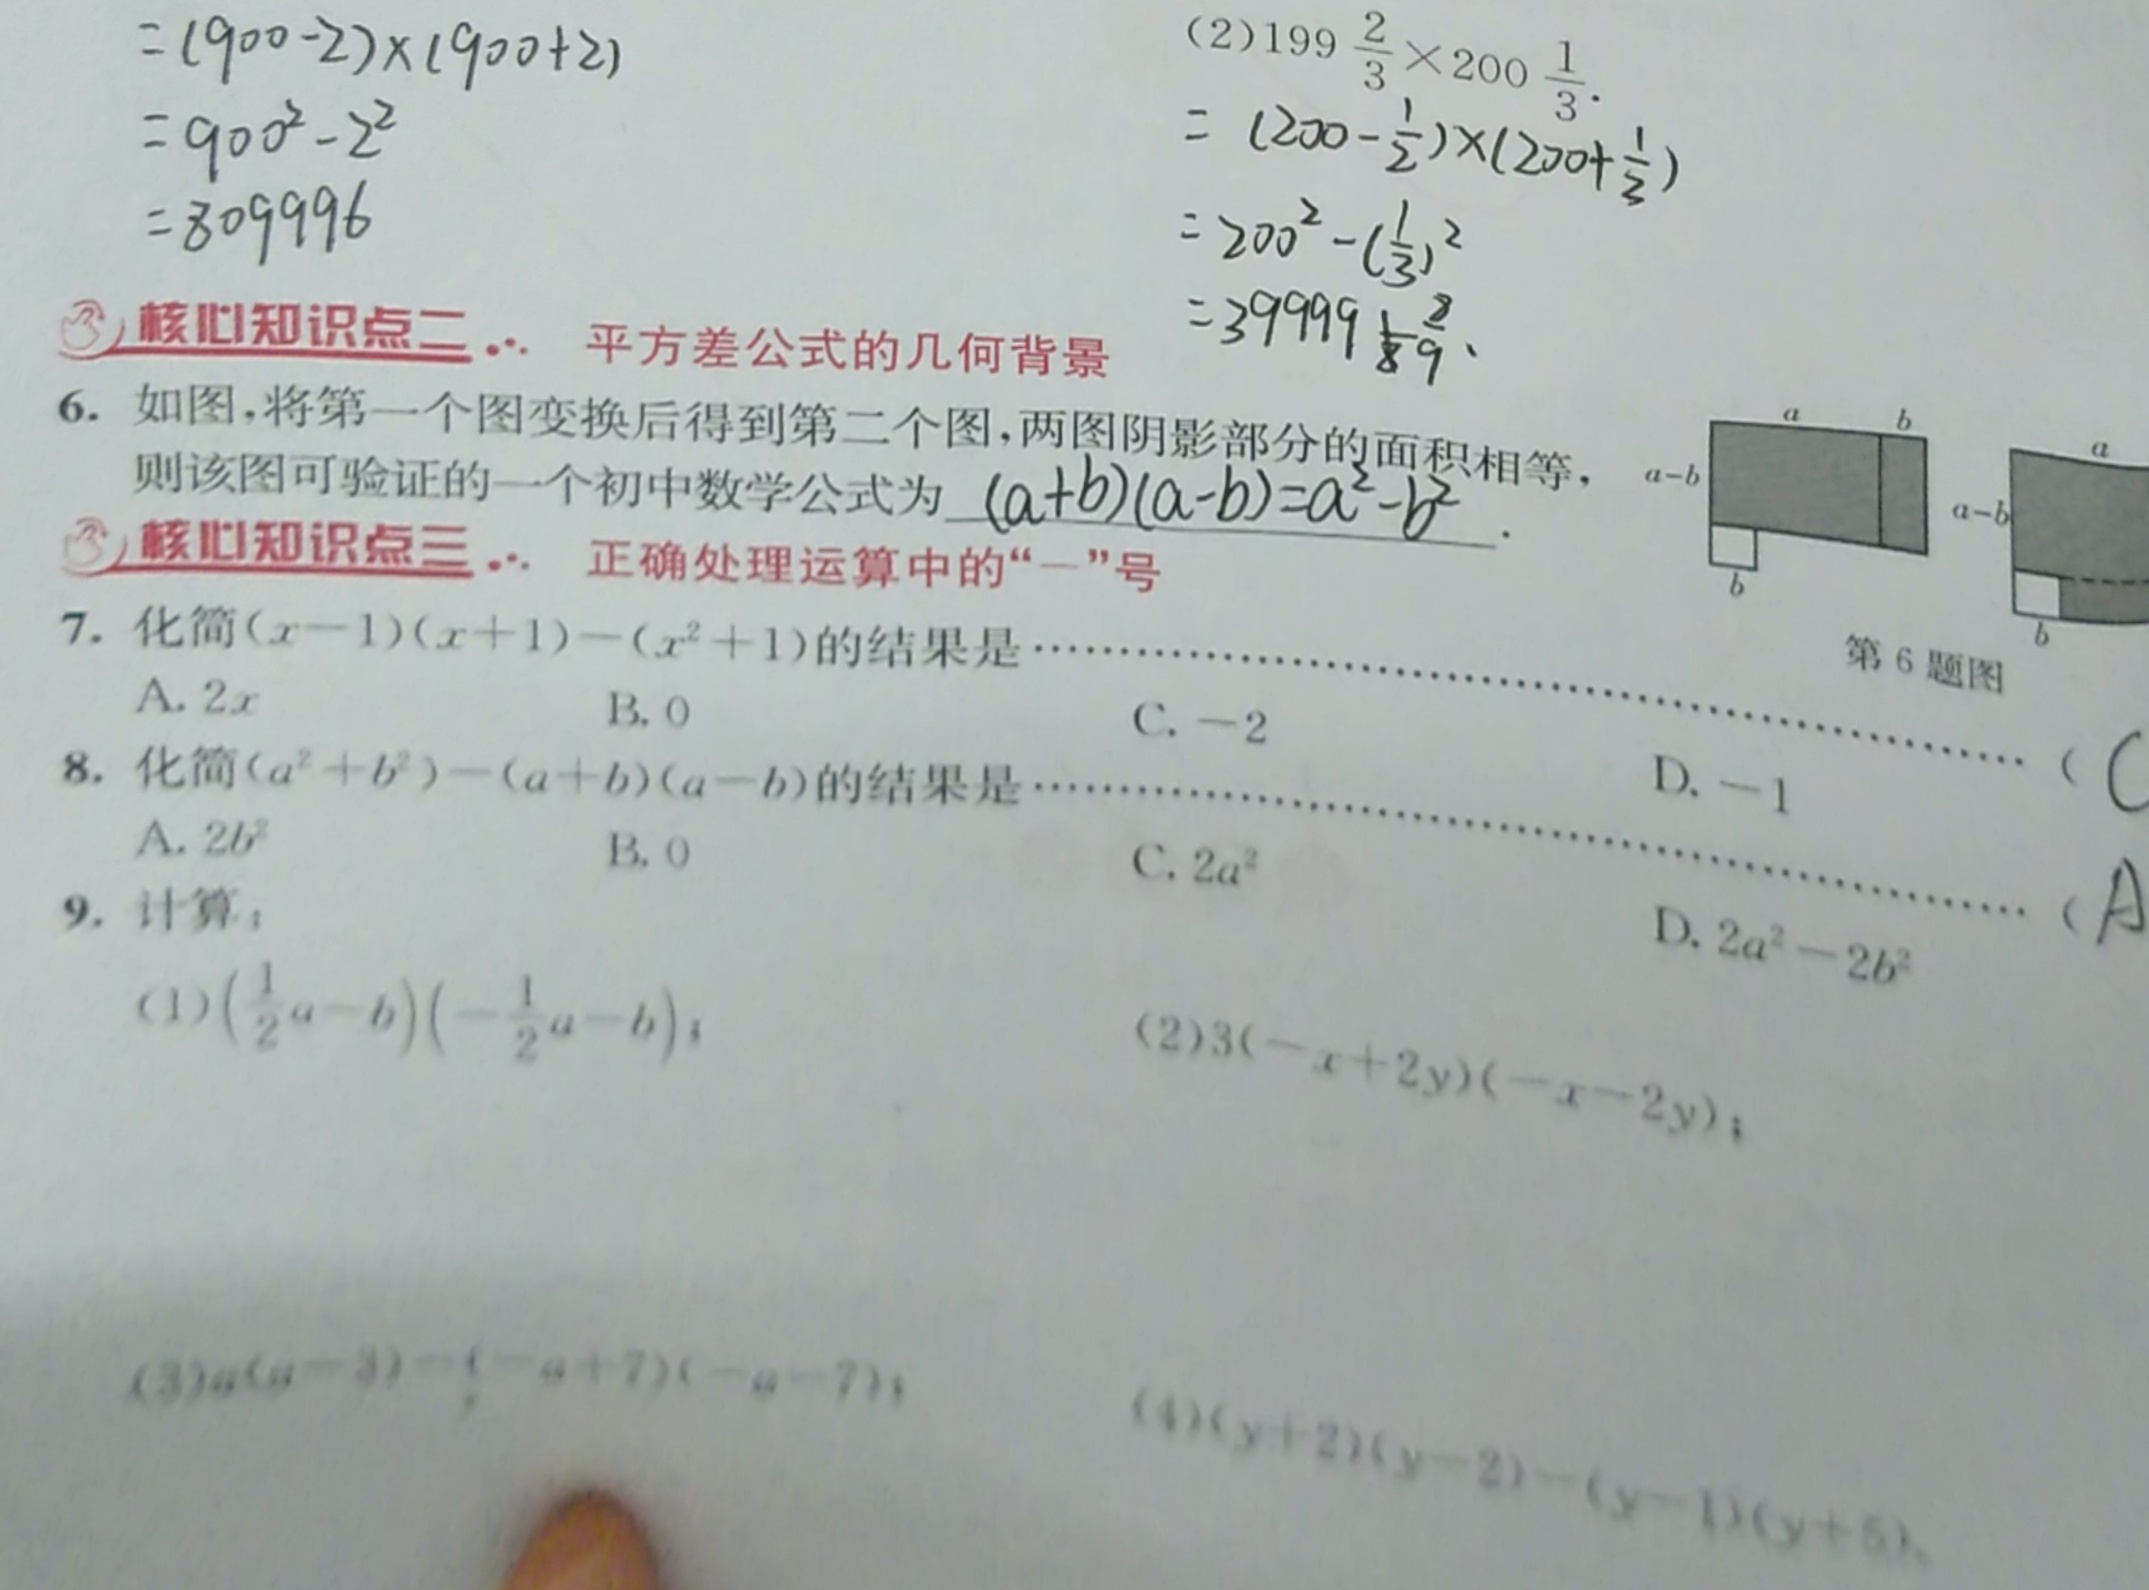 =(900-2)×(900+2)
=900²-2²
=809996
(2)199 2/3×200 1/3.
= (200-1/2)×(200+1/3)
=200²-(1/3)²
=39999 8/9.
核心知识点二 平方差公式的几何背景
6. 如图,将第一个图变换后得到第二个图,两图阴影部分的面积相等,
则该图可验证的一个初中数学公式为 (a+b)(a-b)=a²-b² .
a b
a-b
b
a
a-b
b
第6题图
核心知识点三 正确处理运算中的“-”号
7. 化简(x-1)(x+1)-(x²+1)的结果是…………( C
A. 2x B. 0 C. -2 D. -1
8. 化简(a²+b²)-(a+b)(a-b)的结果是…………( A
A. 2b² B. 0 C. 2a² D. 2a²-2b²
9. 计算:
(1)(1/2a-b)(-1/2a-b); (2)3(-x+2y)(-x-2y);
(3)a(a-3)-(-a+7)(-a-7); (4)(y+2)(y-2)-(y-1)(y+5).